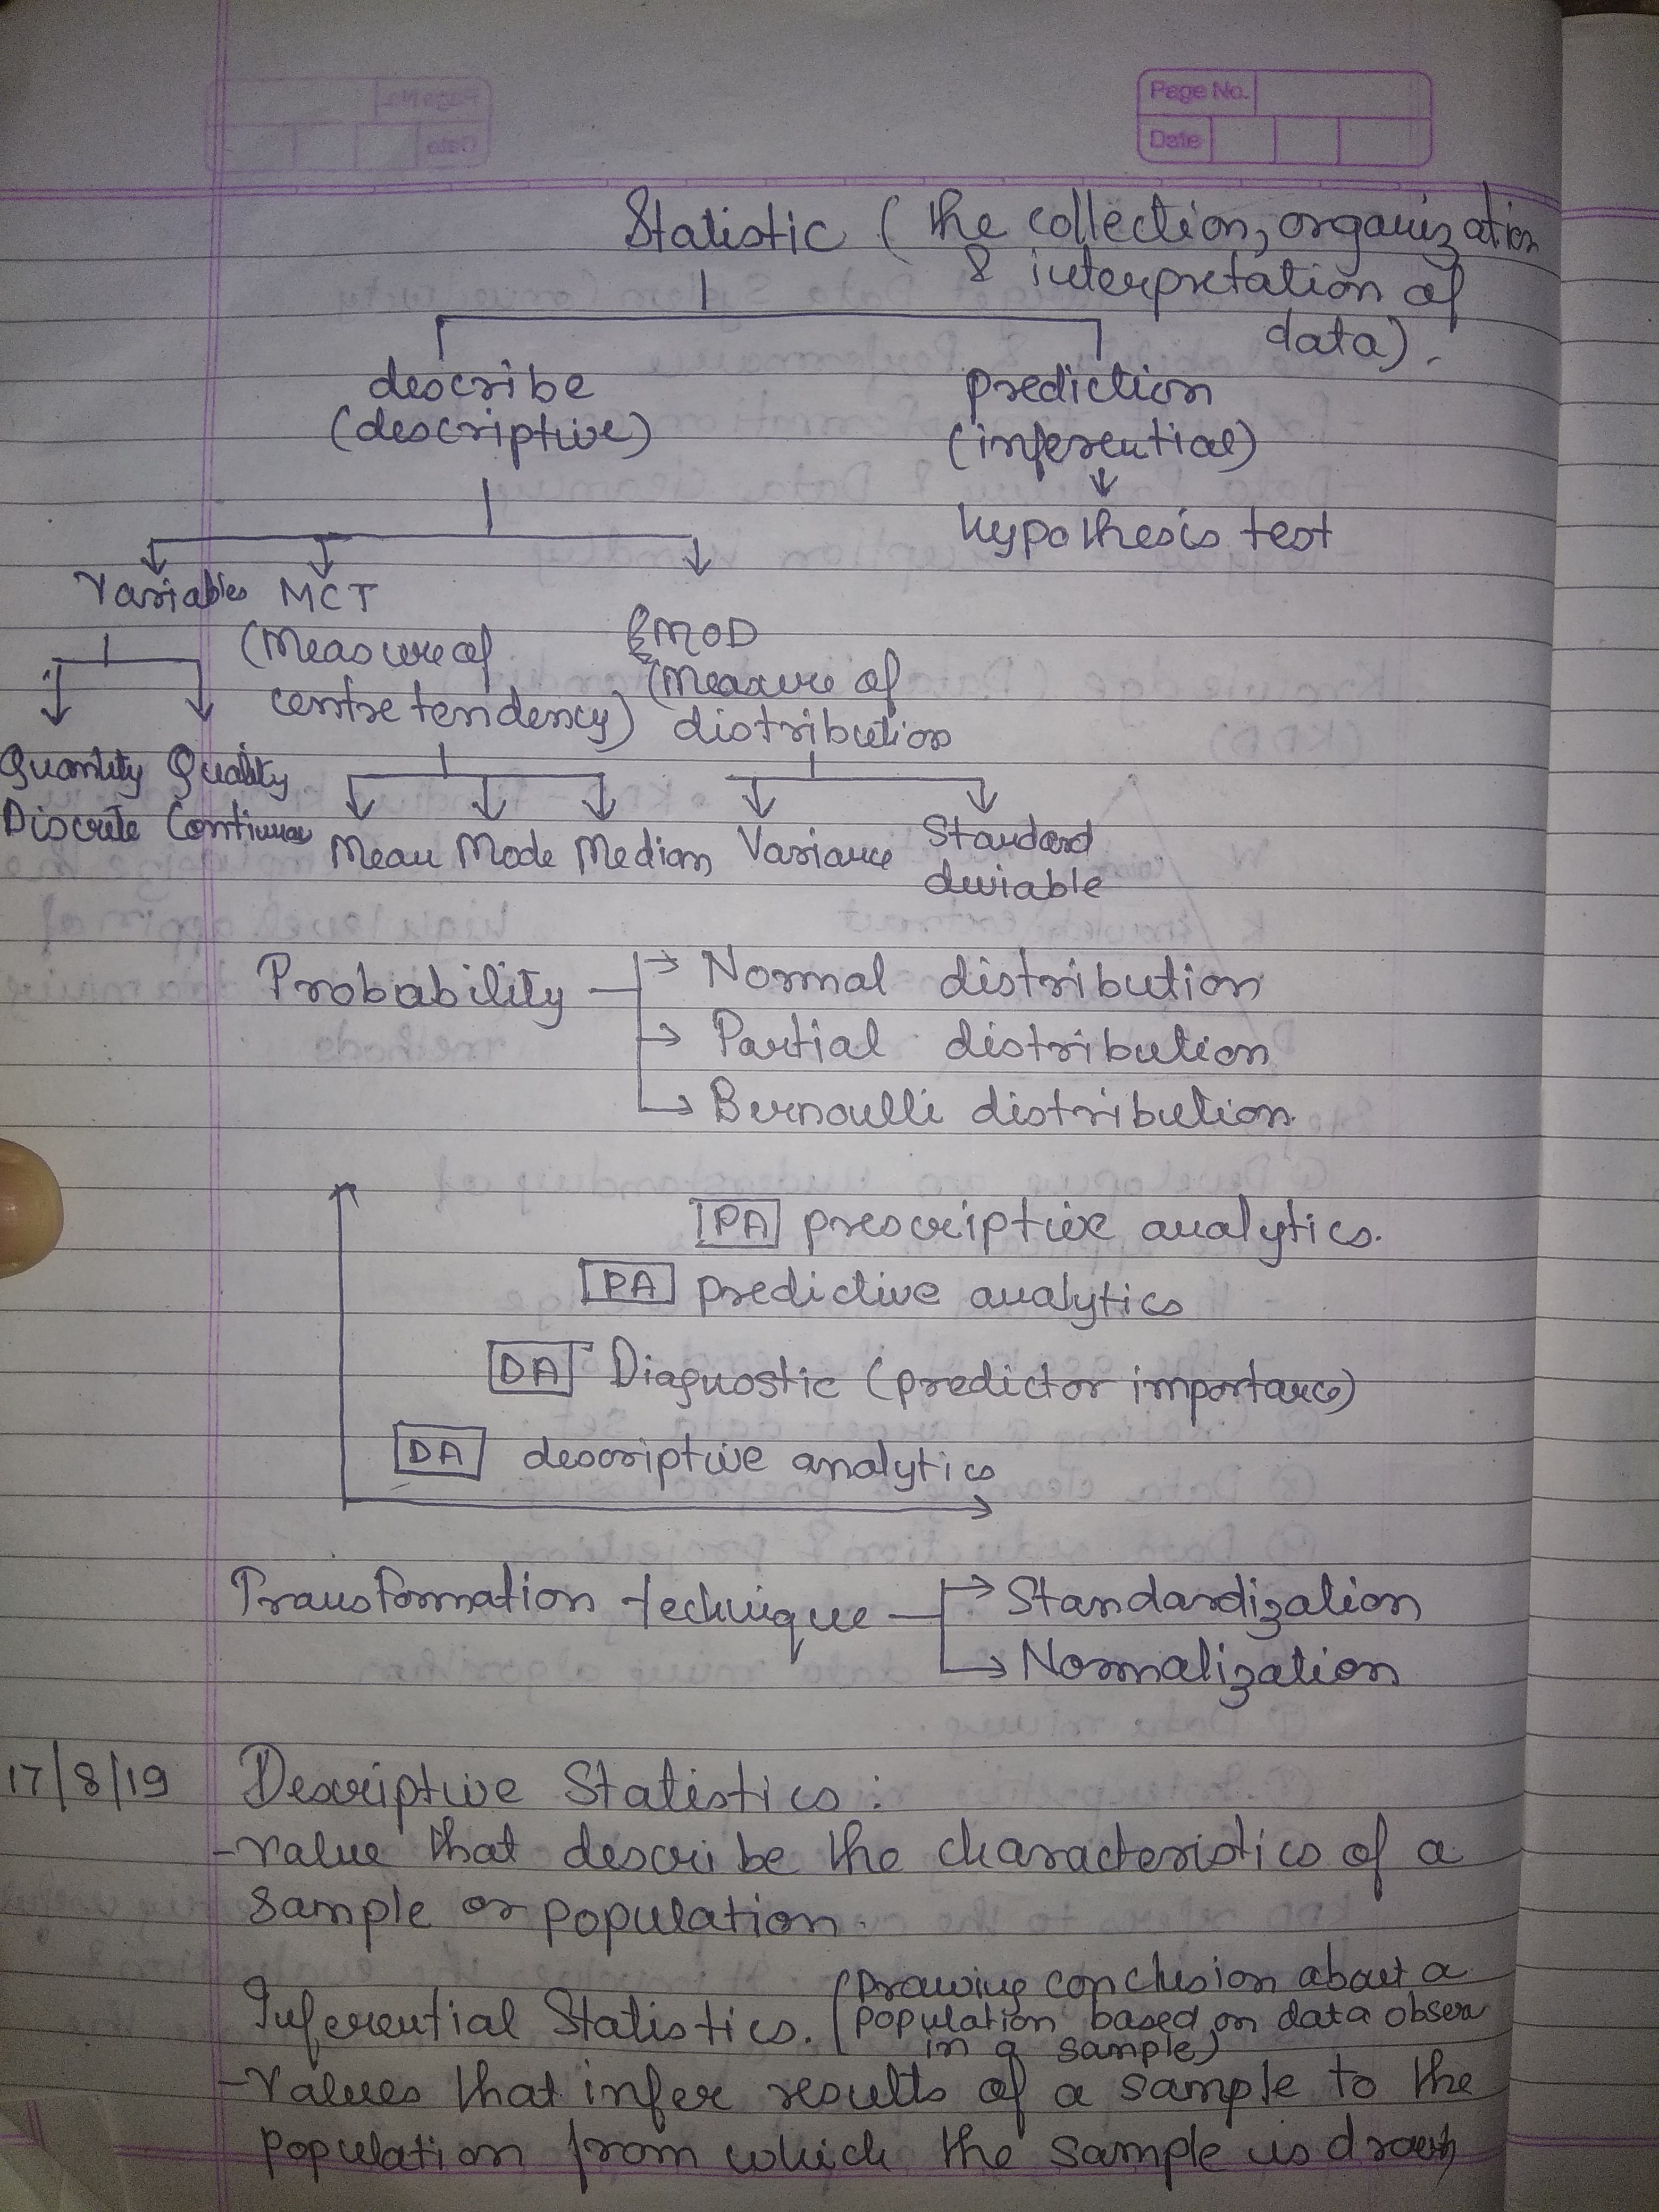 Page No.
Date
Statistic (the collection, organization
& interpretation of
data).
describe
prediction
(descriptive)
(inferential)
hypothesis test
Variables MCT
(Measure of
centre tendency)
MOD
(Measure of
distribution
Quantity Quality
Discrete Continuous
Mean Mode Median Variance Standard
deviable
Probability
Normal distribution
Partial distribution
Bernoulli distribution.
PA prescriptive analytics.
PA predictive analytics
DA Diagnostic (predictor importance)
DA descriptive analytics
Transformation technique
Standardization
Normalization
17/8/19 Descriptive Statistics :
-Value that describe the characteristics of a
sample or population.
Inferential Statistics. (Drawing conclusion about a
population based on data obser
in a sample)
-Values that infer results of a sample to the
population from which the sample is drawn